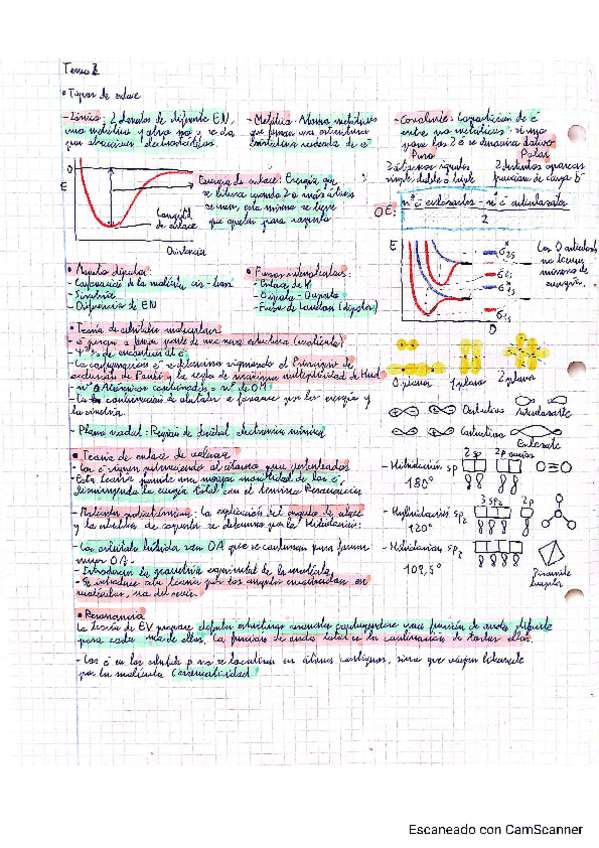 Tema 2
• Tipos de enlace
- Iónico: 2 átomos de diferente EN,
una metálica y otra no y se da
por atracciones electrostáticas.
- Metálico:
que forman una estructura
rodeada de e⁻
- Covalente: Compartición de e⁻
entre no metálicos. si uno
pone los 2 é se denomina dativo
Puro
2 átomos iguales
simple doble o triple
Polar
2 distintos aparecen
fracción de carga δ
OE: nº é enlazantes - nº é antienlazantes
2
O
E
Energía de enlace: Energía que
se libera cuando 2 o más átomos
se unen, esta misma se tiene
que aportar para romperlo
Longitud
de enlace
Distancia
E
D
Los O antienlazantes
no tienen
mínimo de
energía.
• Momento dipolar:
- Conformación de la molécula cis-trans
- Simetría
- Diferencia de EN
• Fuerzas intermoleculares:
- Enlace de H
- Dipolo - Dipolo
- Fuerzas de London (dipolos)
• Teoría de orbitales moleculares
- é pasan a formar parte de una nueva estructura (molécula)
de encontrar el é.
- La configuración é se determina siguiendo el Principio de
exclusión de Pauli y la regla de máxima multiplicidad de Hund
- nº O Atómicos combinados = nº de OM
- La combinación de orbitales se favorece por la energía y
la simetría.
- Plano nodal: Región de densidad electrónica mínima
0 planos
1 plano
2 planos
Destructiva
Antienlazante
Constructiva
Enlazante
• Teoría de enlace de valencia
- Los é siguen perteneciendo al átomo
- Esta teoría permite una mayor movilidad de los é,
disminuyendo la energía total con el término Resonancia
- Moléculas poliatómicas: la explicación del ángulo de enlace
y la se determina por la Hibridación:
- Los orbitales híbridos son OA que se combinan para formar
nuevos OA.
- Introducen la geometría experimental de la molécula
- Se introduce esta teoría por los ángulos encontrados en
moléculas,
- Hibridación sp
180°
2 sp
2p vacíos
- Hybridación sp₂
120°
3 sp₂
2p
- Hibridación sp₃
109,5°
Pirámide
triangular
• Resonancia
La teoría de EV propone definir estructuras resonantes una función de onda diferente
para cada una de ellas. La función de onda total es la combinación de todas ellas.
- Los é en los orbitales p no se localizan en átomos contiguos, sino que viajan libremente
por la molécula
Escaneado con CamScanner